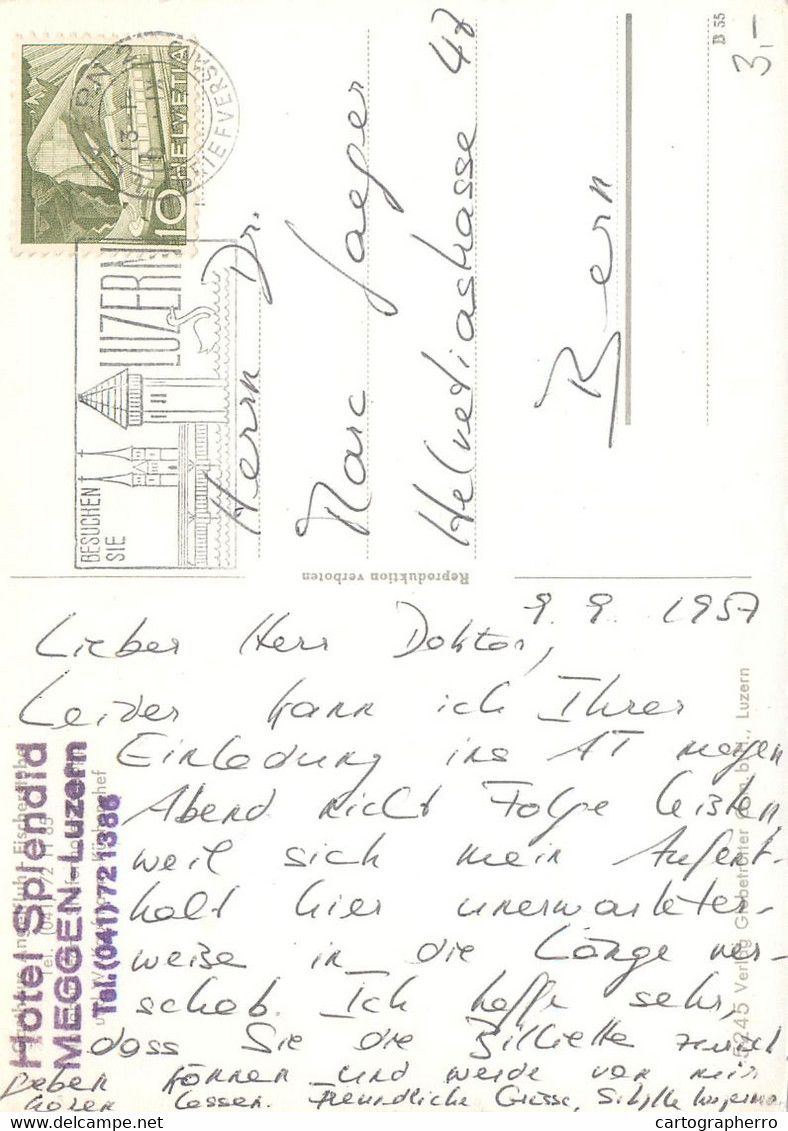 B 55
3,-
HELVETIA
10
LUZERN 2
BRIEFVERSAND
LUZERN
BESUCHEN
SIE
Herrn Dr.
Marc Jaeger
Helvetiastrasse 47
Bern
Reproduktion verboten
9. 9. 1957
Lieber Herr Doktor,
Leider kann ich Ihrer
Einladung ins AT morgen
Abend nicht Folge leisten,
weil sich mein Aufent-
halt hier unerwarteter-
weise in die Länge ver-
schob. Ich hoffe sehr,
dass Sie die Billette zurück
geben können und werde von mir
hören lassen. Freundliche Grüsse, Sibylle
Hotel Splendid
MEGGEN-Luzern
Tel. (041) 72 13 86
5245 Verlag Globetrotter G.m.b.H., Luzern
cartographerro.com